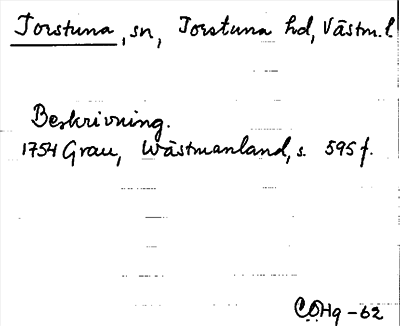 Torstuna, sn, Torstuna hd, Västm.l
Beskrivning.
1754 Grau, Wästmanland, s. 595 f.
COHg -62